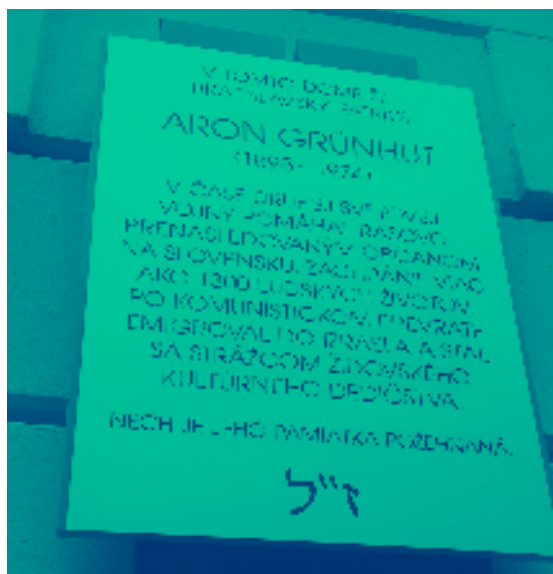 V TOMTO DOME ŽIL
BRATISLAVSKÝ RODÁK
ARON GRÜNHUT
(1895 - 1974)
V ČASE DRUHEJ SVETOVEJ
VOJNY POMÁHAL RASOVO
PRENASLEDOVANÝM OBČANOM
NA SLOVENSKU. ZACHRÁNIL VIAC
AKO 1300 ĽUDSKÝCH ŽIVOTOV.
PO KOMUNISTICKOM PREVRATE
EMIGROVAL DO IZRAELA A STAL
SA STRÁŽCOM ŽIDOVSKÉHO
KULTÚRNEHO DEDIČSTVA.
NECH JE JEHO PAMIATKA POŽEHNANÁ.
ז״ל